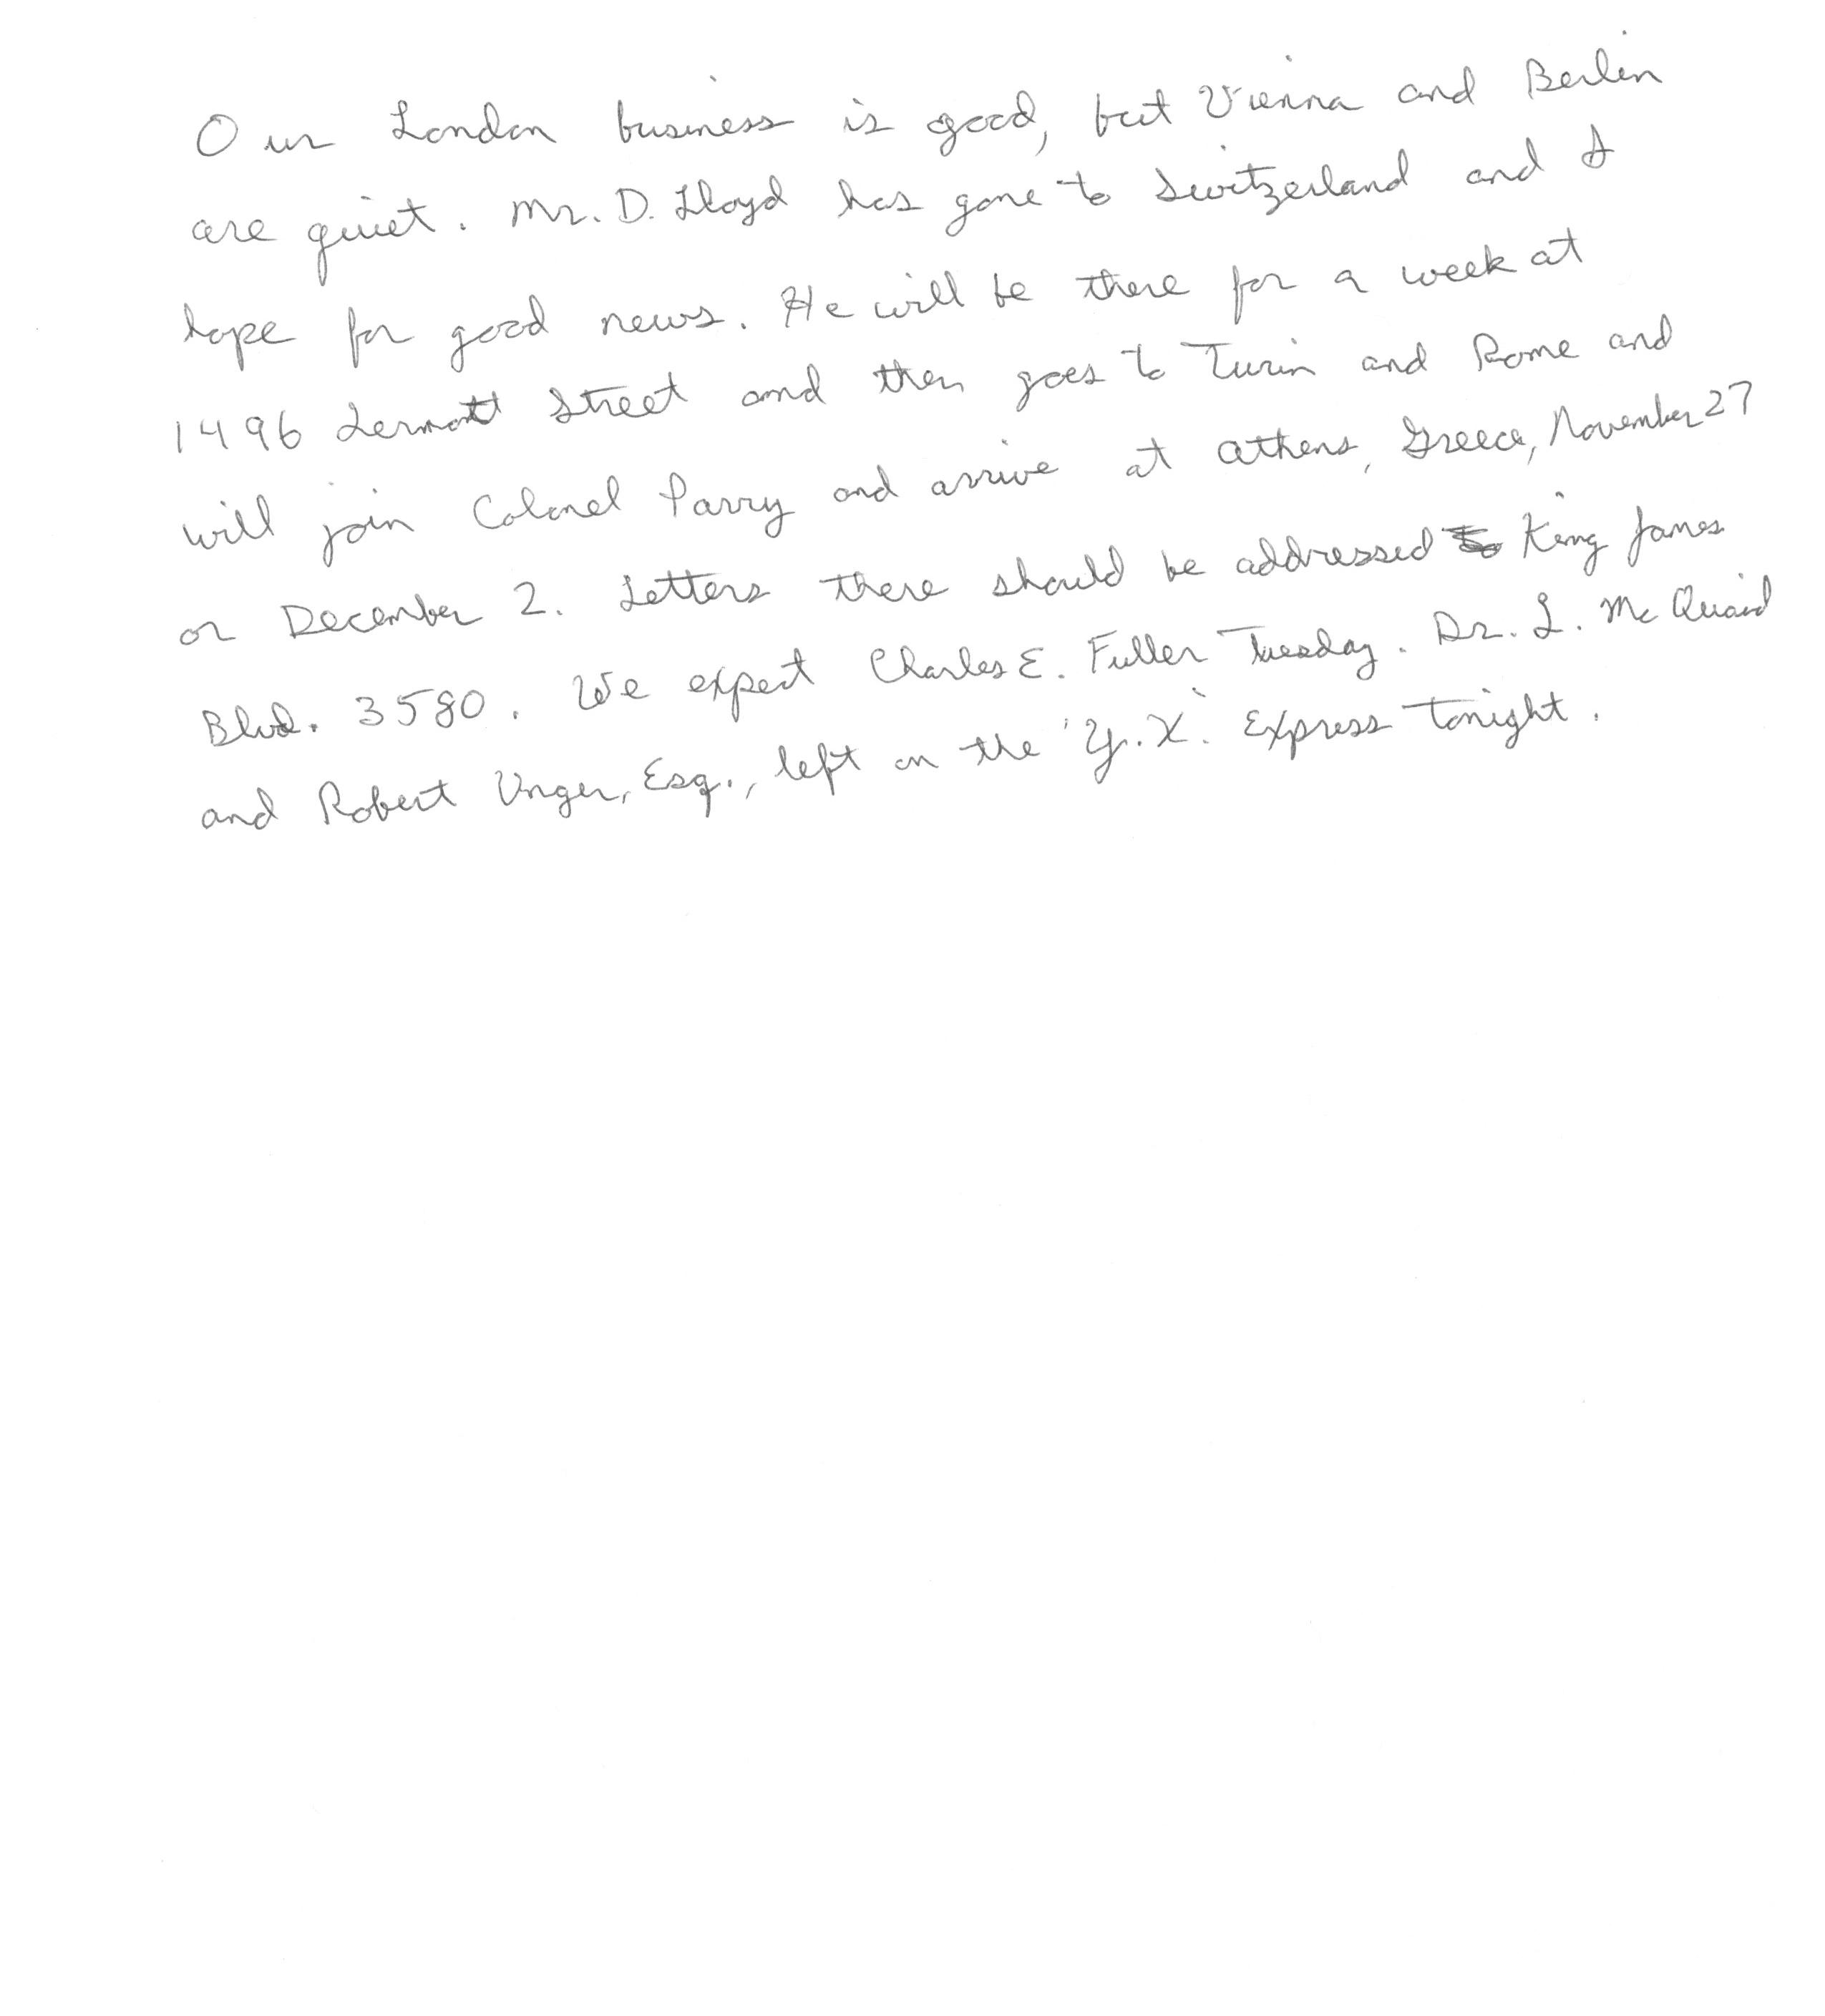 Our London business is good, but Vienna and Berlin
are quiet. Mr. D. Lloyd has gone to Switzerland and I
hope for good news. He will be there for a week at
1496 Zermott Street and then goes to Turin and Rome and
will join Colonel Parry and arrive at Athens, Greece, November 27
or December 2. Letters there should be addressed to King James
Blvd. 3580. We expect Charles E. Fuller Tuesday. Dr. L. McQuaid
and Robert Unger, Esq., left on the 'Y.X.' Express tonight.